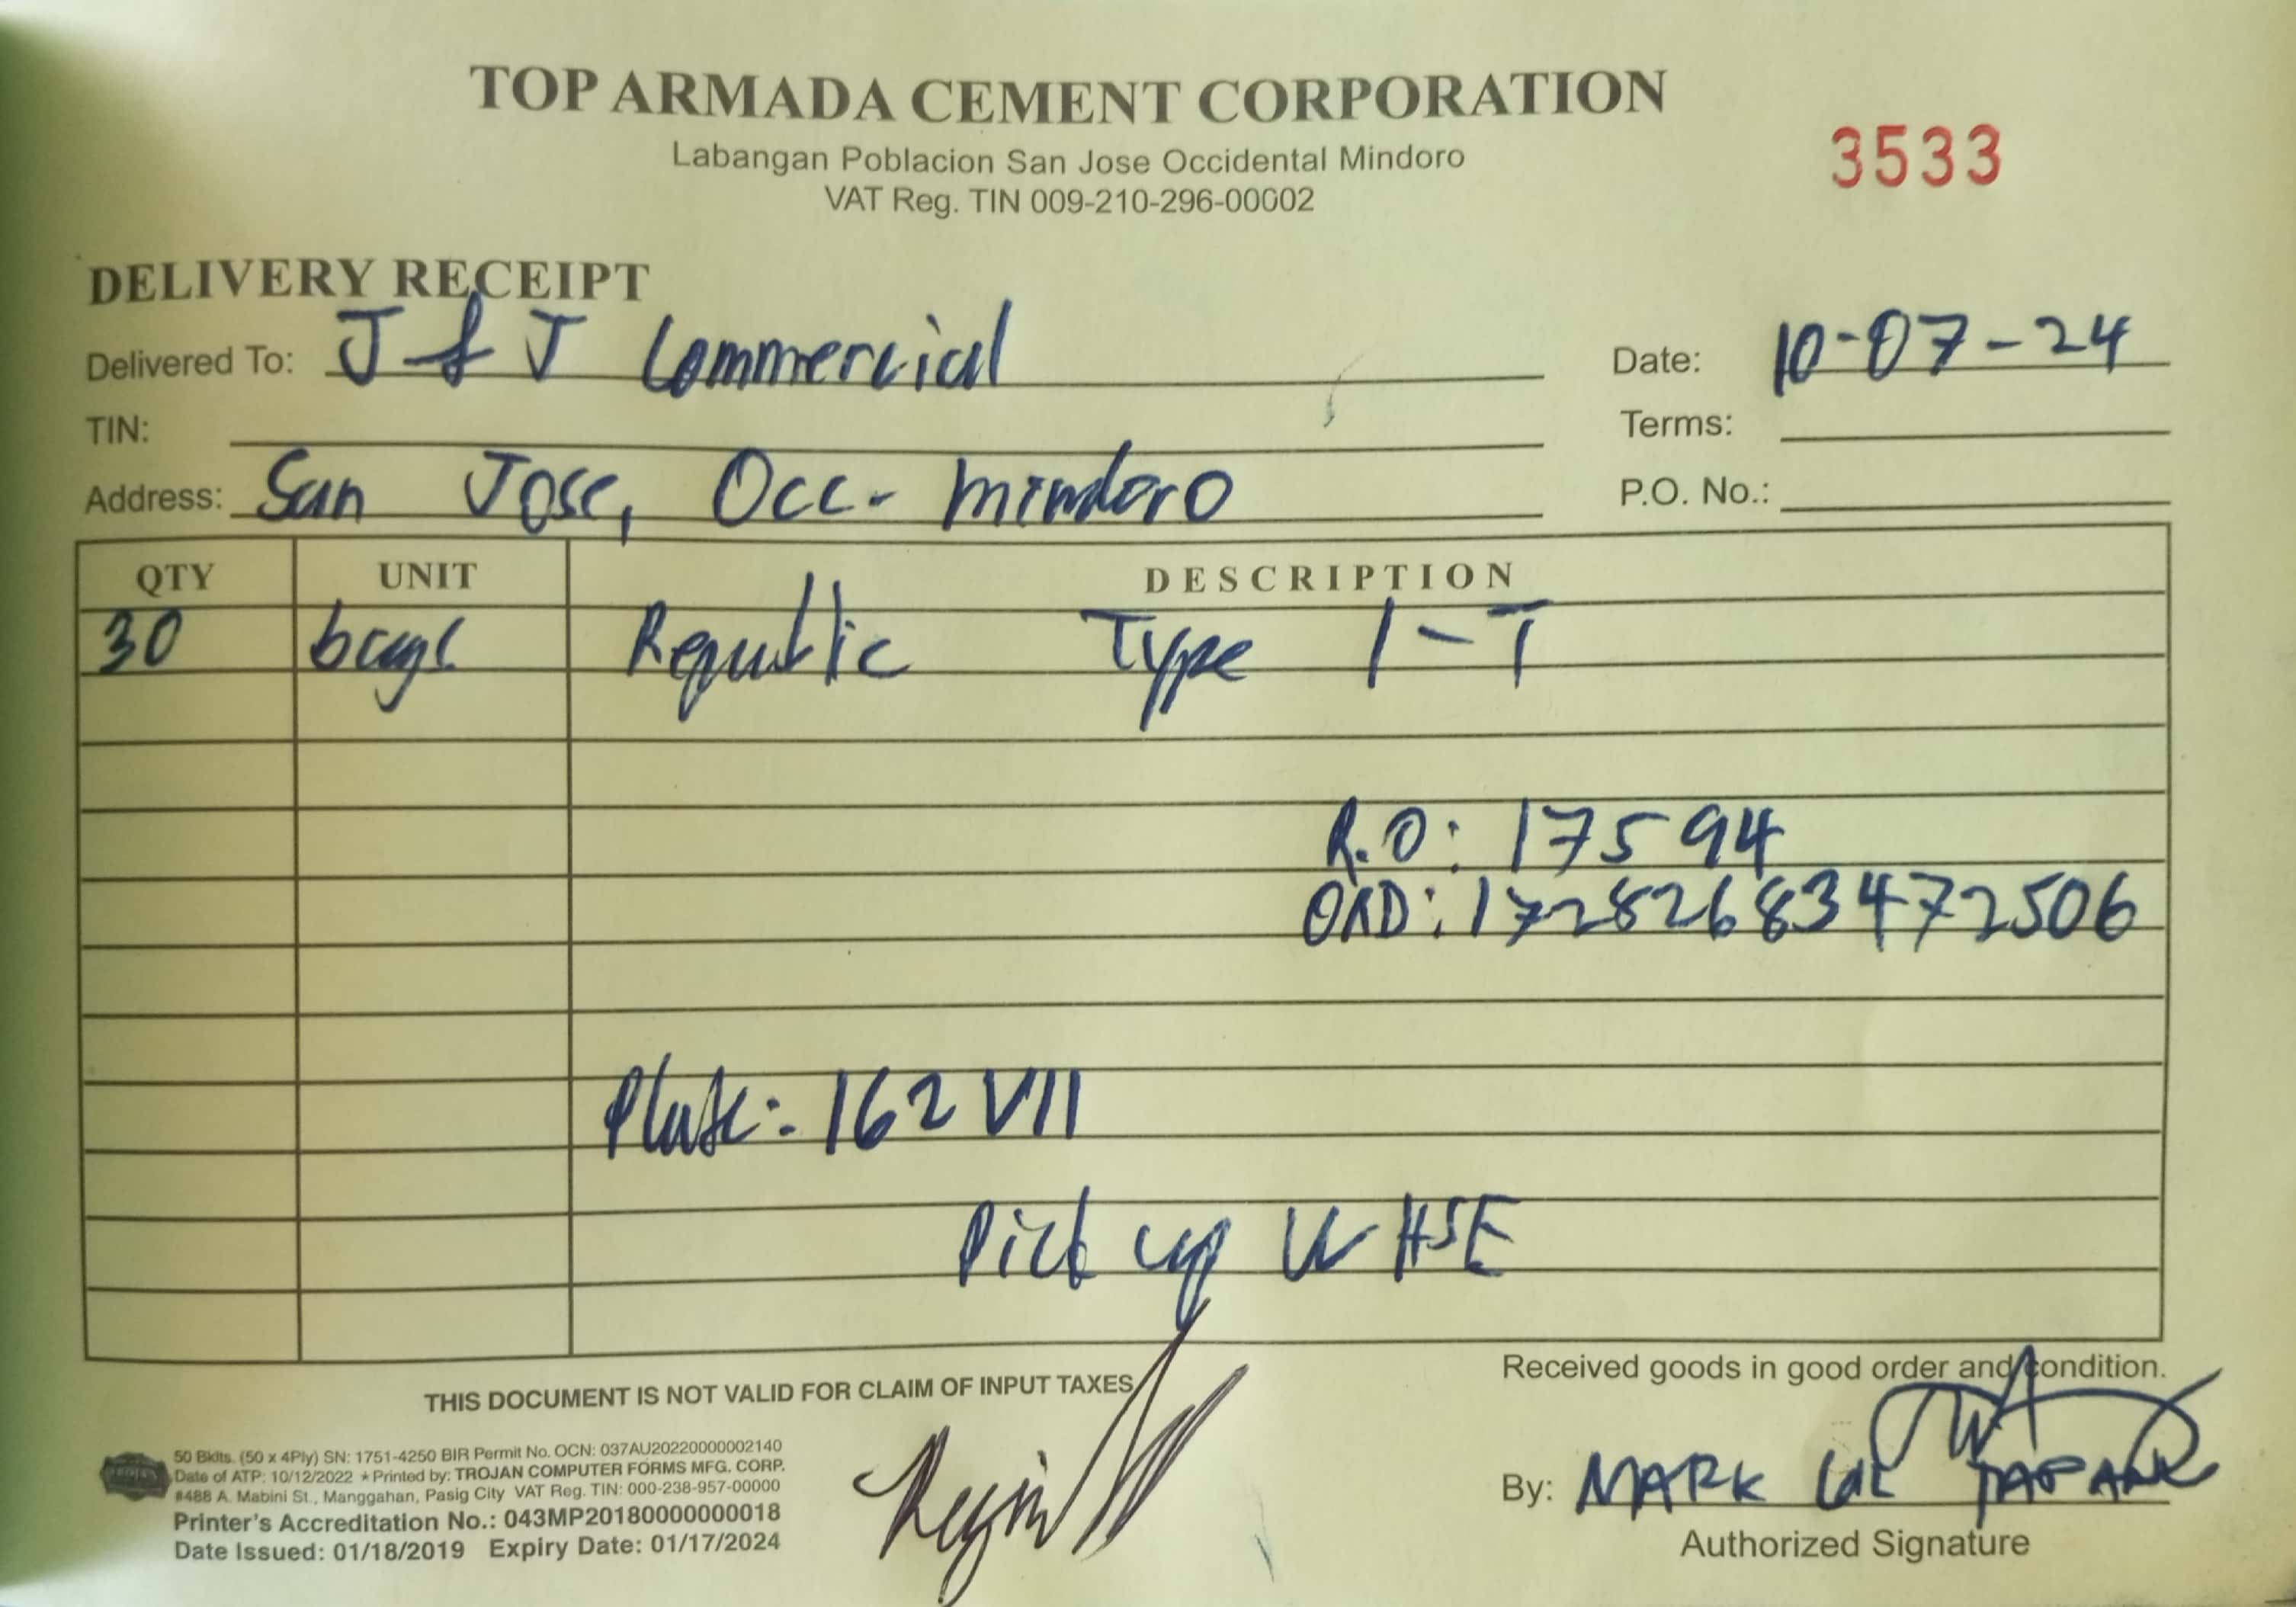 TOP ARMADA CEMENT CORPORATION
Labangan Poblacion San Jose Occidental Mindoro
VAT Reg. TIN 009-210-296-00002
3533
DELIVERY RECEIPT
Delivered To: J & J Commercial
Date: 10-07-24
TIN:
Terms:
Address: San Jose, Occ. Mindoro
P.O. No.:
QTY UNIT DESCRIPTION
30 bags Republic Type 1-T
R.O: 17594
ORD: 17282683472506
Plate: 162 VII
Pick up WHSE
THIS DOCUMENT IS NOT VALID FOR CLAIM OF INPUT TAXES
Received goods in good order and condition.
50 Bklts. (50 x 4Ply) SN: 1751-4250 BIR Permit No. OCN: 037AU20220000002140
Date of ATP: 10/12/2022 ★ Printed by: TROJAN COMPUTER FORMS MFG. CORP.
#488 A. Mabini St., Manggahan, Pasig City VAT Reg. TIN: 000-238-957-00000
Printer's Accreditation No.: 043MP20180000000018
Date Issued: 01/18/2019 Expiry Date: 01/17/2024
By: MARK
Authorized Signature